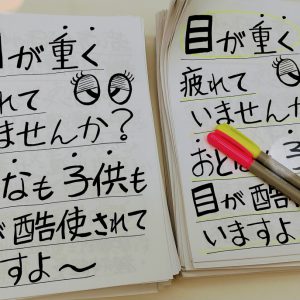 目が重く
れて
ませんか?
なも子供も
が酷使されて
すよ〜
目が重く
疲れて
いませんか
おと 子
目が酷
いますよ